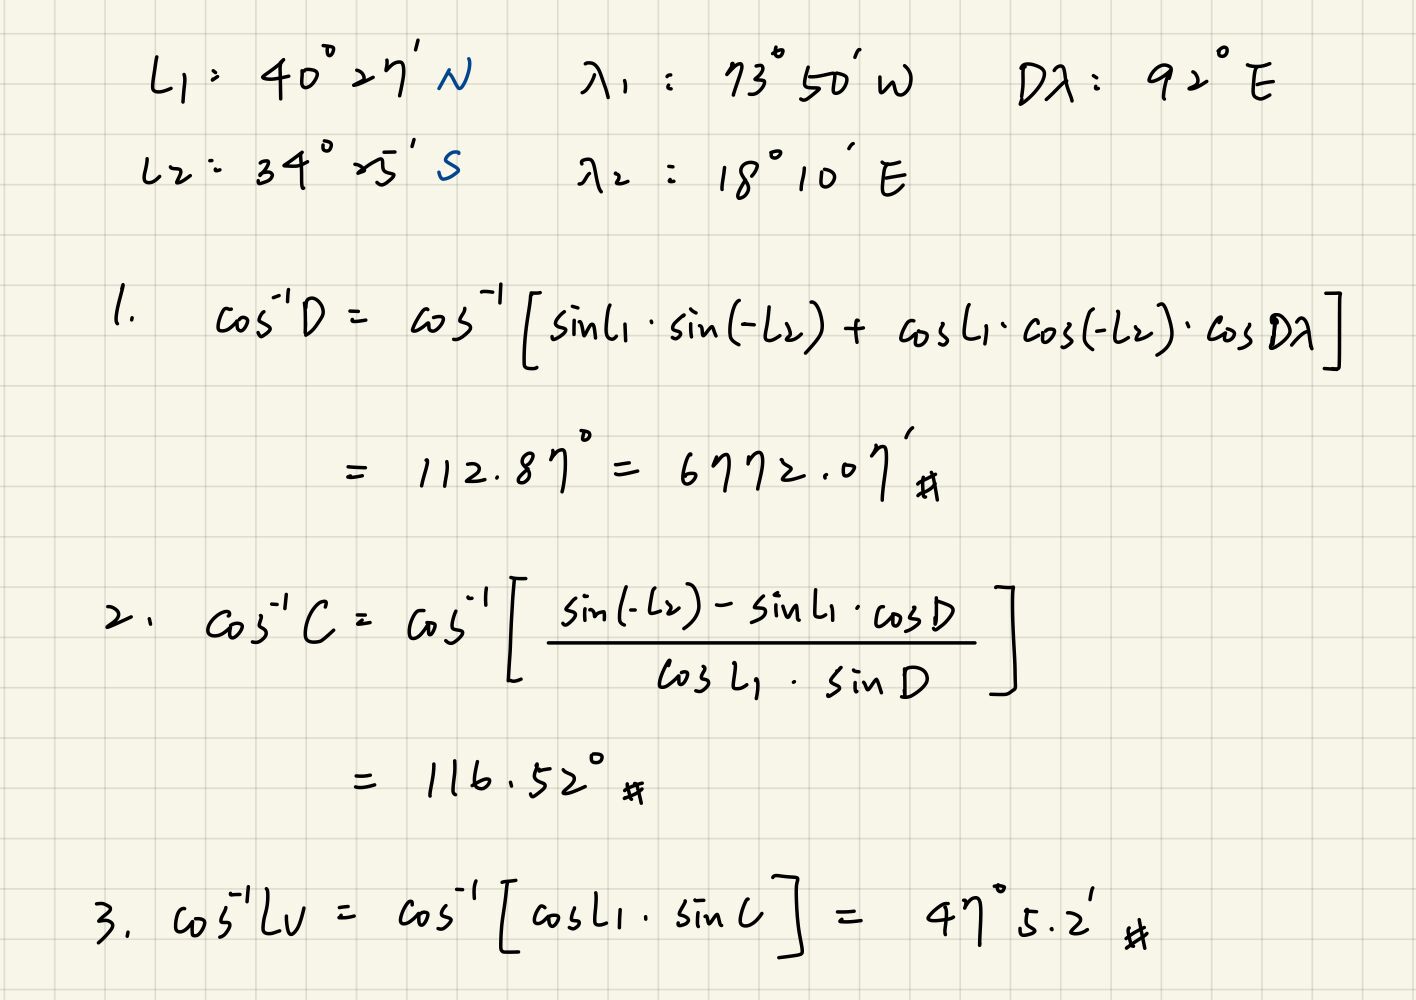 L1: 40°27' N λ1: 73°50' W Dλ: 92° E
L2: 34°25' S λ2: 18°10' E
1. cos⁻¹D = cos⁻¹[sinL1·sin(-L2) + cosL1·cos(-L2)·cosDλ]
= 112.87° = 6772.07' #
2. cos⁻¹C = cos⁻¹[ sin(-L2) - sinL1·cosD
cosL1 · sinD ]
= 116.52° #
3. cos⁻¹Lv = cos⁻¹[cosL1·sinC] = 47°5.2' #